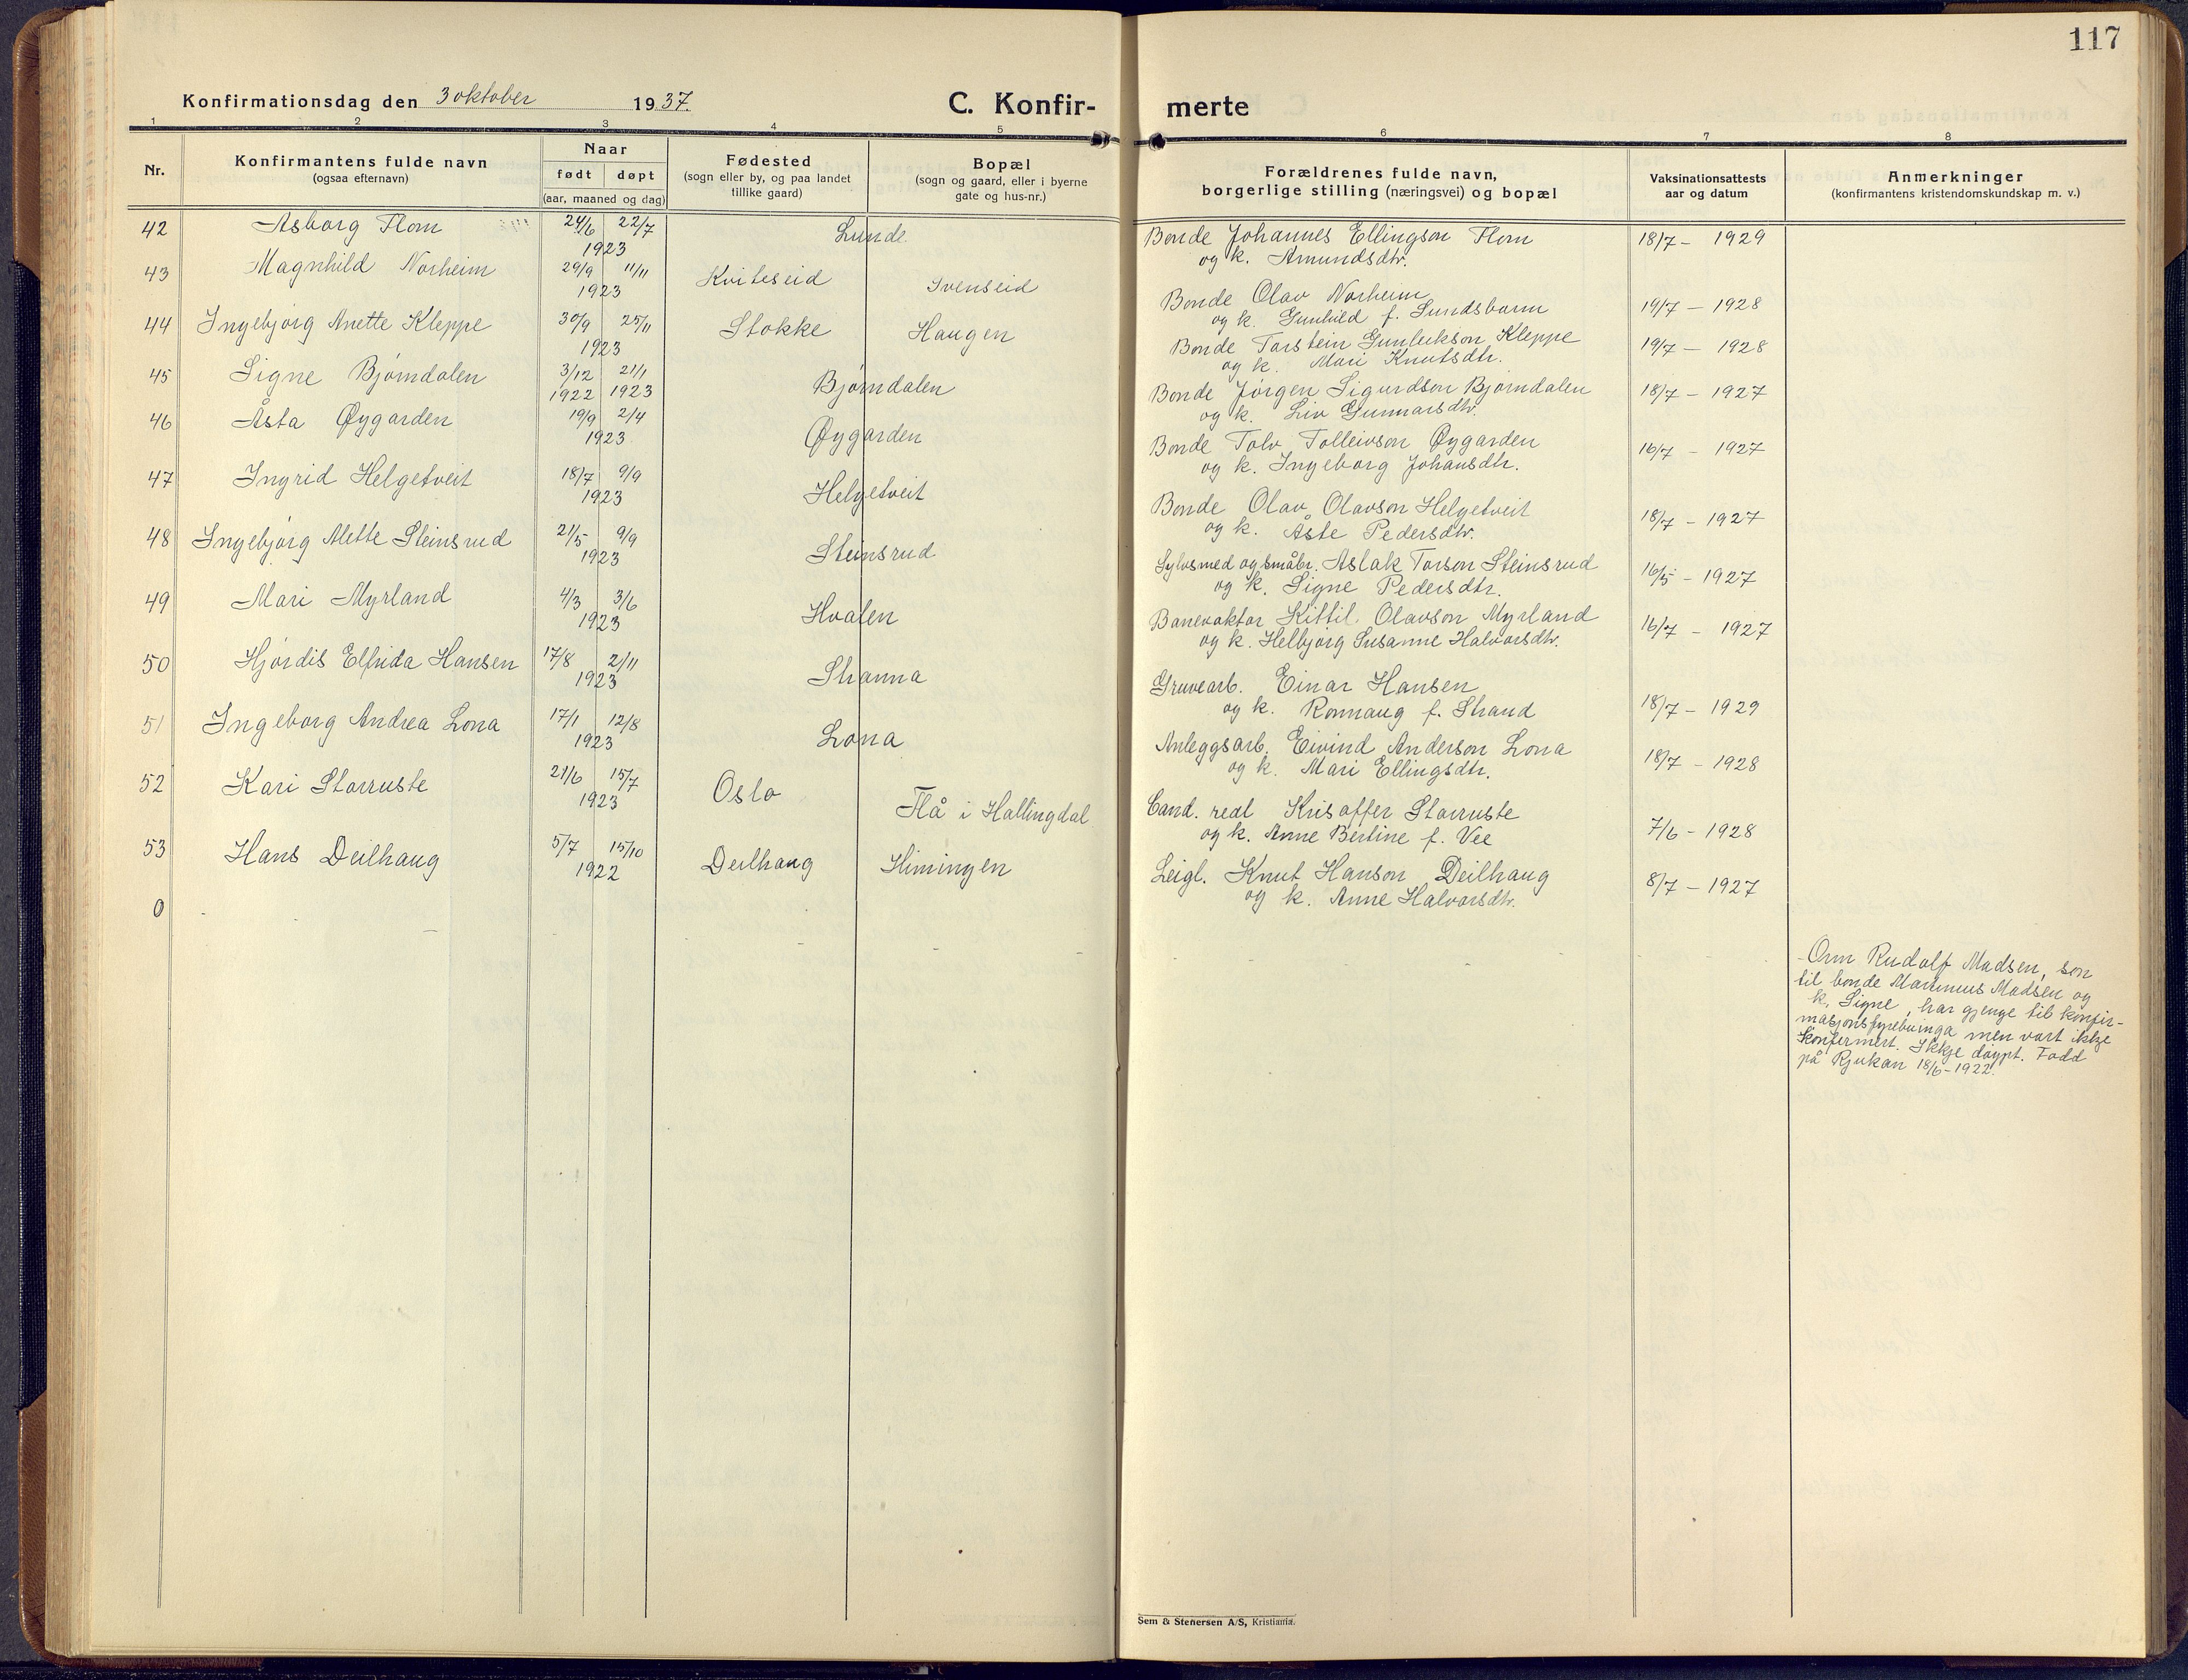 117
Konfirmationsdag den 3 oktober 1937.
C. Konfir-merte
1 2 3 4 5 6 7 8
Nr.
Konfirmantens fulde navn
(ogsaa efternavn)
Naar
født døpt
(aar, maaned og dag)
Fødested
(sogn eller by, og paa landet
tillike gaard)
Bopæl
(sogn og gaard, eller i byerne
gate og hus-nr.)
Forældrenes fulde navn,
borgerlige stilling (næringsvei) og bopæl
Vaksinationsattests
aar og datum
Anmerkninger
(konfirmantens kristendomskundskap m. v.)
42 Asborg Flom 24/6 22/7 Lunde Bonde Johannes Ellingson Flom 18/7 - 1929
1923 og k. Amundsdtr.
43 Magnhild Norheim 29/9 11/11 Kviteseid Svenseid Bonde Olav Norheim 19/7 - 1928
1923 og k. Gunhild f. Sundsbarm
44 Ingebjørg Anette Kleppe 30/9 25/11 Stokke Haugen Bonde Torstein Gunleikson Kleppe 19/7 - 1928
1923 og k. Mari Knutsdtr.
45 Signe Bjørndalen 3/12 21/1 Bjørndalen Bonde Jørgen Sigurdson Bjørndalen 18/7 - 1927
1922 1923 og k. Liv Gunnarsdtr.
46 Åsta Øygarden 19/9 2/4 Øygarden Bonde Tolv Tolleivson Øygarden 16/7 - 1927
1923 og k. Ingeborg Johansdtr.
47 Ingrid Helgetveit 18/7 9/9 Helgetveit Bonde Olav Olavson Helgetveit 18/7 - 1927
1923 og k. Åste Pedersdtr.
48 Ingebjørg Alette Steinsrud 21/5 9/9 Steinsrud Sylvsmed og småbr. Aslak Torson Steinsrud 16/5 - 1927
1923 og k. Signe Pedersdtr.
49 Mari Myrland 4/3 3/6 Hvalen Banevaktar Kittil Olavson Myrland 16/7 - 1927
1923 og k. Helbjørg Susanne Halvorsdtr.
50 Hjørdis Elfrida Hansen 17/8 2/11 Stranna Gruvearb. Einar Hansen 18/7 - 1929
1923 og k. Ronnaug f. Strand
51 Ingeborg Andrea Lona 17/1 12/8 Lona Anleggsarb. Eivind Anderson Lona 18/7 - 1928
1923 og k. Mari Ellingsdtr.
52 Kari Storruste 21/6 15/7 Oslo Flå i Hallingdal Cand. real Krisoffer Storruste 7/6 - 1928
1923 og k. Anne Bertine f. Vee
53 Hans Deilhaug 5/7 15/10 Deilhaug Himingen Leigl. Knut Hanson Deilhaug 8/7 - 1927
1922 og k. Anne Halvorsdtr.
0
Orm Rudolf Madsen, son
til bonde Marinius Madsen og
k. Signe, har gjenge til konfir-
masjonsfyrebuinga men vart ikkje
konfirmert. Ikkje døypt. Fødd
på Rjukan 18/6 - 1922.
Sem & Stenersen A/S, Kristiania.